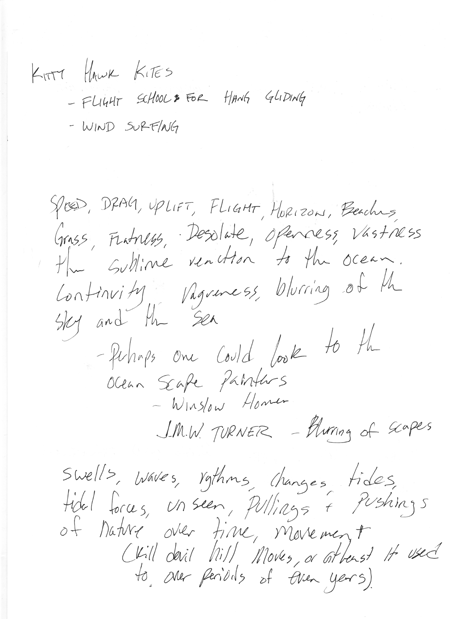 KITTY HAWK KITES
- FLIGHT SCHOOLS FOR HANG GLIDING
- WIND SURFING
SPEED, DRAG, UPLIFT, FLIGHT, HORIZON, Beaches,
Grass, Flatness, Desolate, openness, vastness
the sublime reaction to the ocean.
Continuity, vagueness, blurring of the
sky and the sea
- Perhaps one could look to the
ocean scape painters
- Winslow Homer
J.M.W. TURNER - Blurring of scapes
swells, waves, rythms, changes, tides,
tidal forces, unseen, pullings + pushings
of nature over time, movement
(kill devil hill moves, or atleast it used
to, over periods of even years).